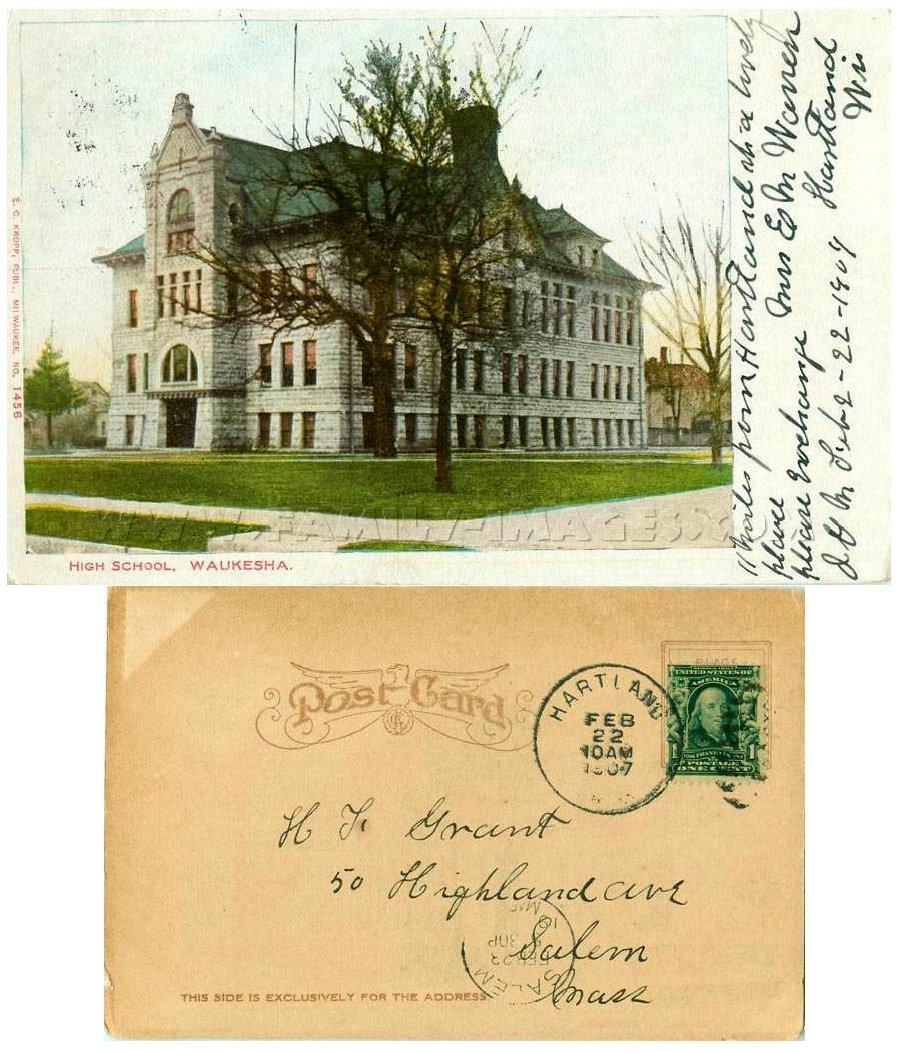 E. C. KROPP, PUBL., MILWAUKEE, NO. 1456
WWW.FAMILY-IMAGES.COM
HIGH SCHOOL, WAUKESHA.
miles from Hartland its a lovely
place Mrs E M Warren
please Exchange Hartland
Feb 22-1907 Wis
Post Card
HARTLAND
FEB
22
10AM
1907
PLACE
UNITED STATES OF
AMERICA
1 1
POSTAGE
ONE CENT
H F. Grant
50 Highland ave
Salem
Mass
SALEM
FEB 23
30P
MAS
THIS SIDE IS EXCLUSIVELY FOR THE ADDRESS